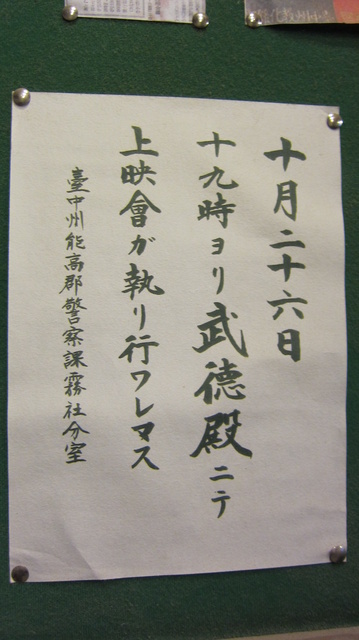 十月二十六日
十九時ヨリ武德殿ニテ
上映會ガ執リ行ワレマス
臺中州能高郡警察課霧社分室